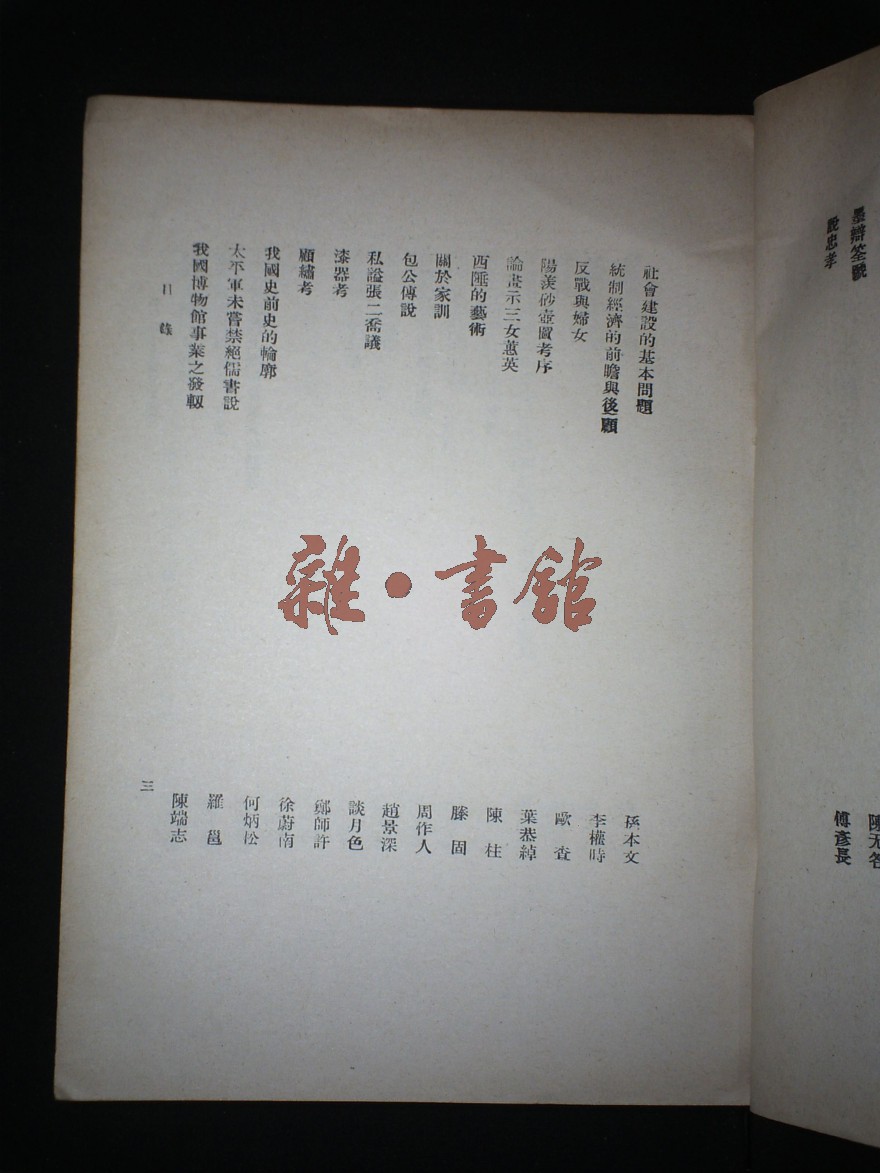 說忠孝
傅彥長
社會建設的基本問題
孫本文
統制經濟的前瞻與後顧
李權時
反戰與婦女
歐查
陽羨砂壺圖考序
葉恭綽
論畫示三女蕙英
陳柱
西陲的藝術
滕固
關於家訓
周作人
包公傳說
趙景深
私謚張二喬議
談月色
漆器考
鄭師許
顧繡考
徐蔚南
我國史前史的輪廓
何炳松
太平軍未嘗禁絕儒書說
羅邕
我國博物館事業之發軔
陳端志
目錄
三
雜·書館